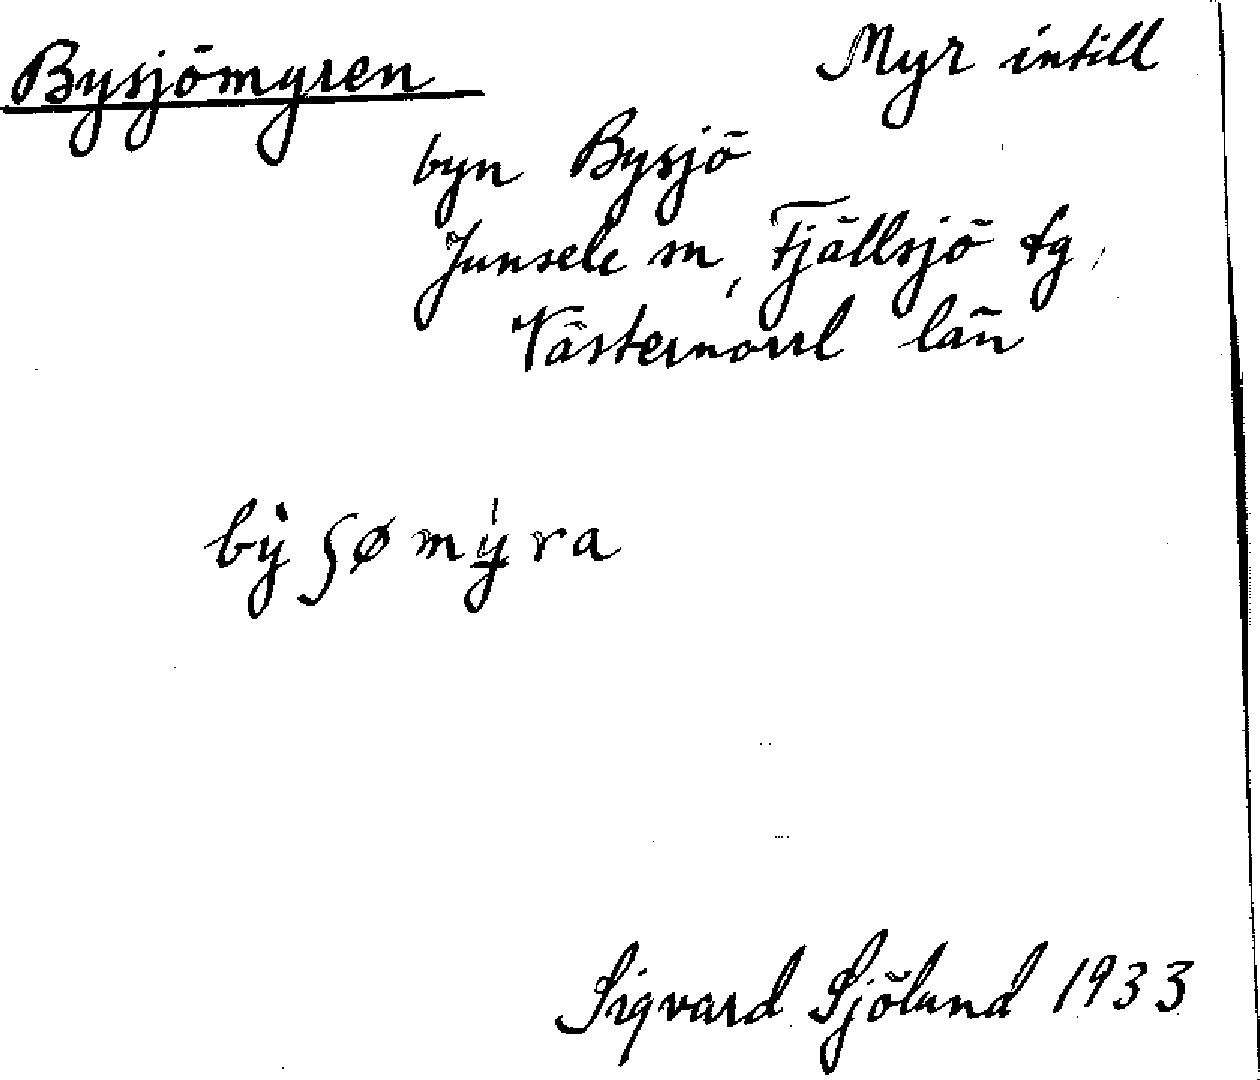 Bysjömyren Myr intill
byn Bysjö
Junsele sn, Fjällsjö tg,
Västernorrl län
bỳʃømý̱ra
Sigvard Sjölund 1933